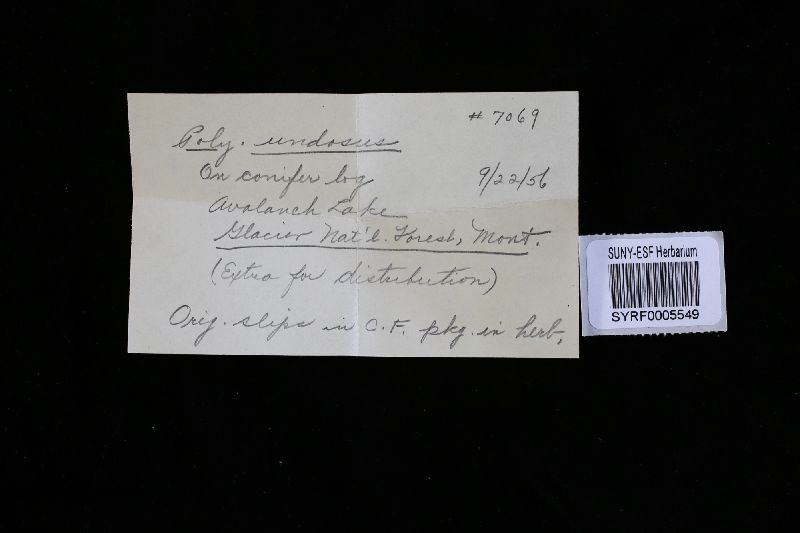 # 7069
Poly. undosus
On conifer log 9/22/56
Avalanch Lake
Glacier Nat'l. Forest, Mont.
(Extra for distribution)
Orig. slips in C.F. pkg. in herb.
SUNY-ESF Herbarium
SYRF0005549